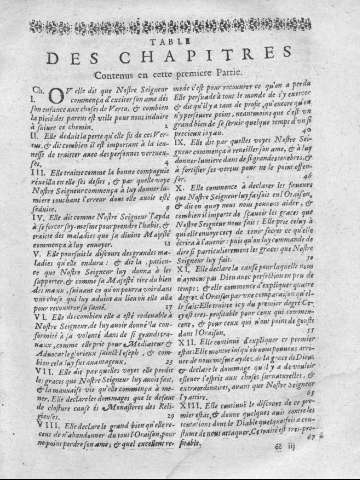 TABLE
DES CHAPITRES
Contenus en cette premiere Partie.
Ch. I. OV elle dit que Nostre Seigneur
commença d'exciter son ame dés
son enfance aux choses de Vertu, & combien
la pieté des parens est utile pour nous induire
à suivre ce chemin. 1
II. Elle deduit la perte qu'elle fit de ces Vertus,
& dit combien il est important à la jeunesse
de traitter avec des personnes vertueuses. 4
III. Elle traitte comme la bonne compagnie
réveilla en elle ses desirs, & par quelle voye
Nostre Seigneur commença à luy donner lumiere
touchant l'erreur dont elle avoit esté
seduite.
IV. Elle dit comme Nostre Seigneur l'ayda
à se forcer soy-mesme pour prendre l'habit, &
traitte des maladies que sa divine Majesté
commença à luy envoyer. 12
V. Elle poursuit le discours des grandes maladies
qu'elle endura: & dit la patience
que Nostre Seigneur luy donna à les
supporter, & comme sa Majesté tire du bien
des maux, suivant ce qu'on pourra voir dans
une chose qui luy advint au lieu où elle alla
pour recouvrer sa santé.
VI. Elle dit combien elle a esté redevable à
Nostre Seigneur, de luy avoir donné la conformité
à sa volonté dans de si grands travaux,
comme elle prit pour Mediateur &
Advocat le glorieux saint Joseph, & combien
cela luy fut avantageux.
VII. Elle dit par quelles voyes elle perdit
les graces que Nostre Seigneur luy avoit faites,
& la mauvaise vie qu'elle commença à mener.
Elle declare les dommages que le defaut
de closture cause és Monasteres des Religieuses. 29
VIII. Elle declare le grand bien qu'elle receut
de n'abandonner du tout l'Oraison, pour
ne point perdre son ame, & quel excellent remede
c'est pour recouvrer ce qu'on a perdu.
Elle persuade à tout le monde de s'y exercer
& dit qu'il y a tant de profit, qu'encore qu'on
n'y persevere point, neantmoins que c'est un
grand bien de se servir quelque temps d'un si
precieux joyau. 40
IX. Elle dit par quelles voyes Nostre Seigneur
commença à réveiller son ame, & à luy
donner lumiere dans de si grandes tenebres, &
à fortifier ses vertus pour ne le point offenser.
X. Elle commence à declarer les faveurs
que Nostre Seigneur luy faisoit en l'Oraison,
& dit en quoy nous nous pouvons aider, &
combien il importe de sçavoir les graces que
Nostre Seigneur nous fait: Elle prie celuy à
qui elle envoye cecy de tenir secret ce qu'elle
écrira à l'avenir: puis qu'on luy commande de
dire si particulierement les graces que Nostre
Seigneur luy fait. 50
XI. Elle declare la cause pour laquelle nous
n'aymons pas Dieu avec perfection en peu de
temps: & elle commence d'expliquer quatre
degrez d'Oraison par une comparaison qu'elle
fait: Elle traitte icy du premier degré: Cecy
est tres-profitable pour ceux qui commencent,
& pour ceux qui n'ont point de gousts
dans l'Oraison. 55
XII. Elle continuë d'expliquer ce premier
estat: Elle dit jusques où nous pouvons arriver
de nous mesmes aydez de la grace de Dieu,
& declare le dommage qu'il y a de vouloir
eslever l'esprit aux choses surnaturelles, &
extraordinaires, avant que Nostre Seigneur
l'y attire.
XIII. Elle continuë le discours de ce premier
estat, & donne quelques avis contre les
tentations dont le Diable quelquefois a coustume
de nous attaquer. Ce traité est tres-profitable. 67
ẽẽ iij